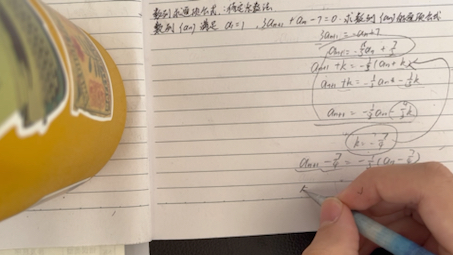 数列求通项公式：待定系数法
数列{an}满足 a₁=1，3an+1 + an - 7 = 0，求数列{an}的通项公式
3an+1 = -an + 7
an+1 = -1/3 an + 7/3
an+1 + k = -1/3 (an + k)
an+1 + k = -1/3 an - 1/3 k
an+1 = -1/3 an - 4/3 k
k = -7/4
an+1 - 7/4 = -1/3 (an - 7/4)